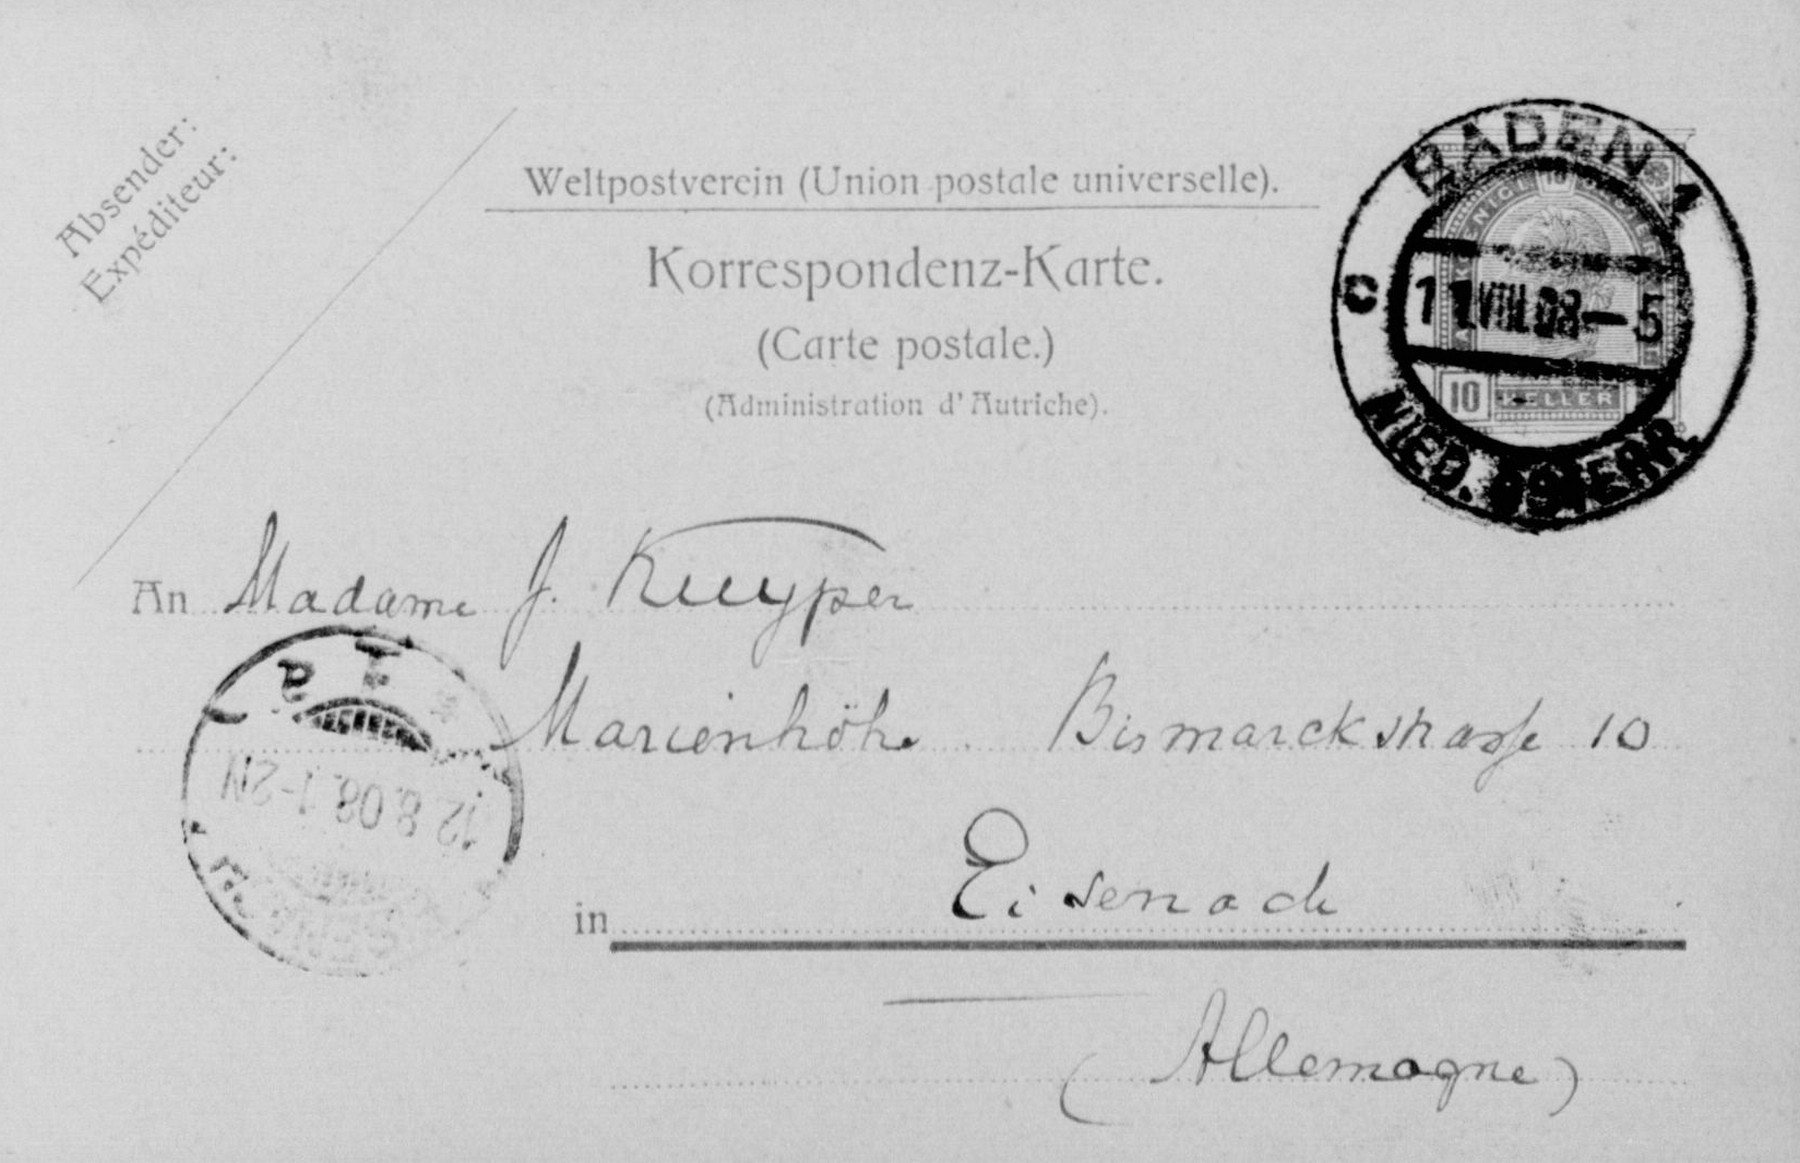 Absender:
Expéditeur:
Weltpostverein (Union postale universelle).
Korrespondenz-Karte.
(Carte postale.)
(Administration d'Autriche).
BADEN 1
C
11.VIII.08-5
NIED. ÖSTERR.
10
10 HELLER
An Madame J. Kuyper
Marienhöhe. Bismarckstrasse 10
12.8.08.1-2N
in Eisenach
(Allemagne)